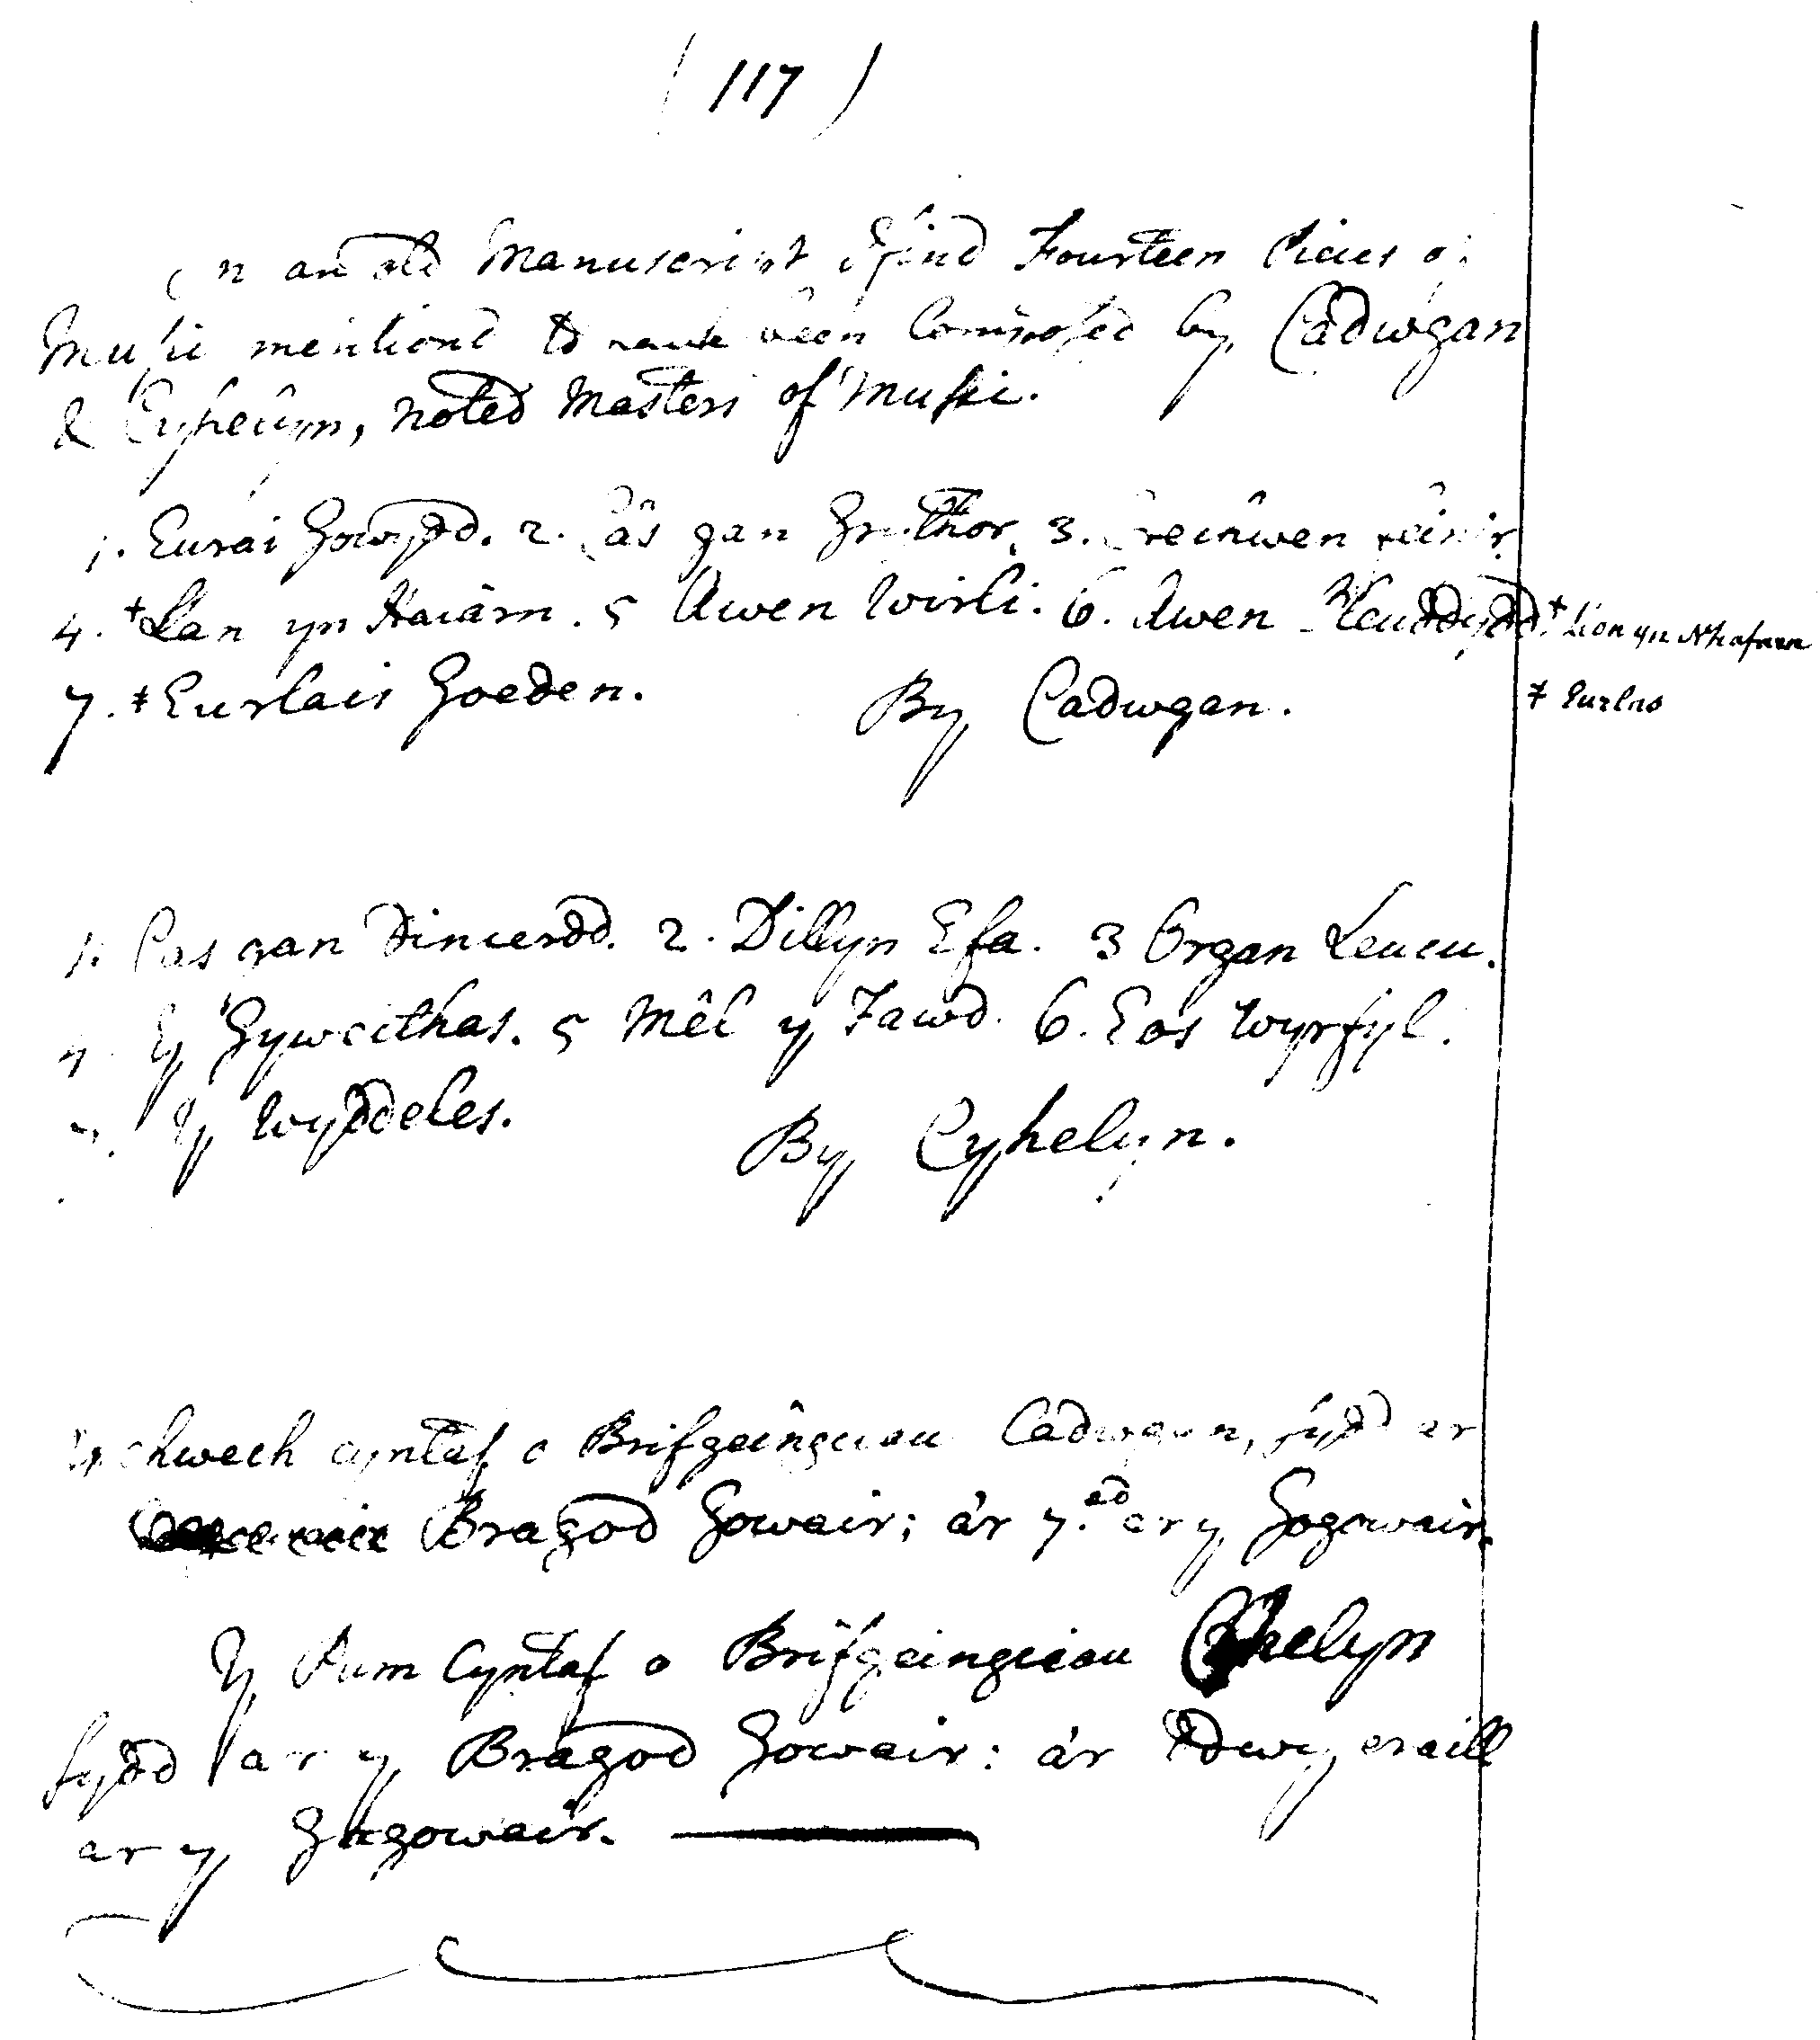 ( 117 )
In an old Manuscript I find Fourteen Pieces of
Musick mentiond to have been Composed by Cadwgan
& Cyhelyn, noted Masters of Musick.
1. Eurai Gowydd. 2. Câs gan Grythor. 3. Creinwen
4. + Lan yn Haiarn. 5 Awen Wirli. 6. Awen
+ Lion yn Nhafarn
7. ‡ Eurlais Goeden. By Cadwgan.
‡ Eurlas
1. Cas gan Dincerdd. 2. Dillyn Efa. 3 Organ Leucu.
4. Y Gyweithas. 5 Mêl y Fawd. 6. Eos Wyrfyl.
7. Y Wyddeles. By Cyhelyn.
Y chwech cyntaf o Brifgeingciau Cadwgan, sydd ar
Bragod Gowair; a'r 7.ed ar y Gogowair.
Y Pum Cyntaf o Brifgeingciau Cyhelyn
sydd ar y Bragod Gowair: a'r ddwy eraill
ar y Gogowair.